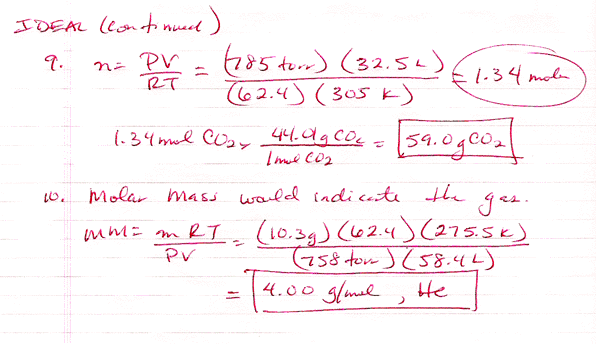 IDEAL (continued)
9. n = PV/RT = (785 torr) (32.5 L) / (62.4) (305 K) = 1.34 moles
1.34 mol CO2 x 44.01 g CO2 / 1 mol CO2 = 59.0 g CO2
10. Molar Mass would indicate the gas.
MM = mRT/PV = (10.3g) (62.4) (275.5 K) / (758 torr) (58.4 L)
= 4.00 g/mol, He